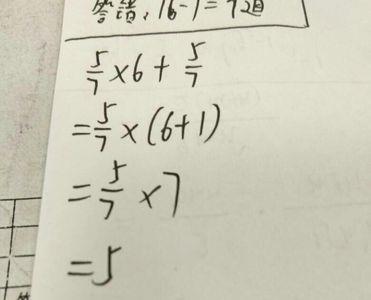 答错:16-1=7道
5/7×6+5/7
=5/7×(6+1)
=5/7×7
=5